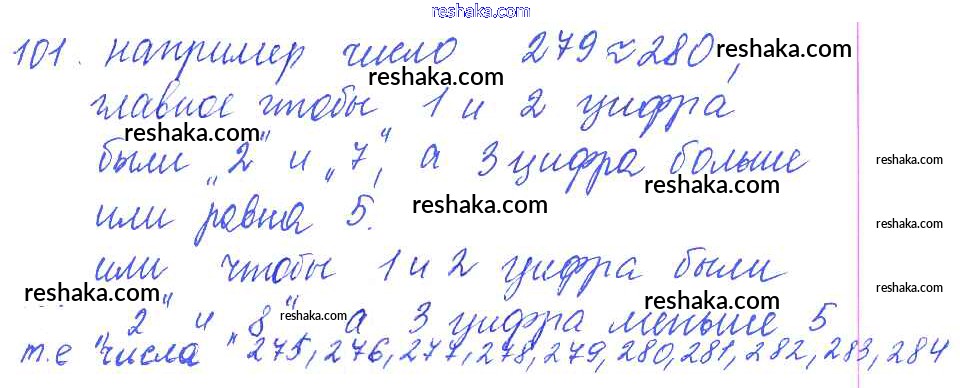 reshaka.com
101. например число 279 ≈ 280,
reshaka.com
главное чтобы 1 и 2 цифра
reshaka.com
были „2" и „7", а 3 цифра больше
reshaka.com
reshaka.com
или равна 5.
reshaka.com
reshaka.com
или чтобы 1 и 2 цифра были
reshaka.com
reshaka.com
reshaka.com
„2" и „8" а 3 цифра меньше 5
reshaka.com
т.е числа 275, 276, 277, 278, 279, 280, 281, 282, 283, 284